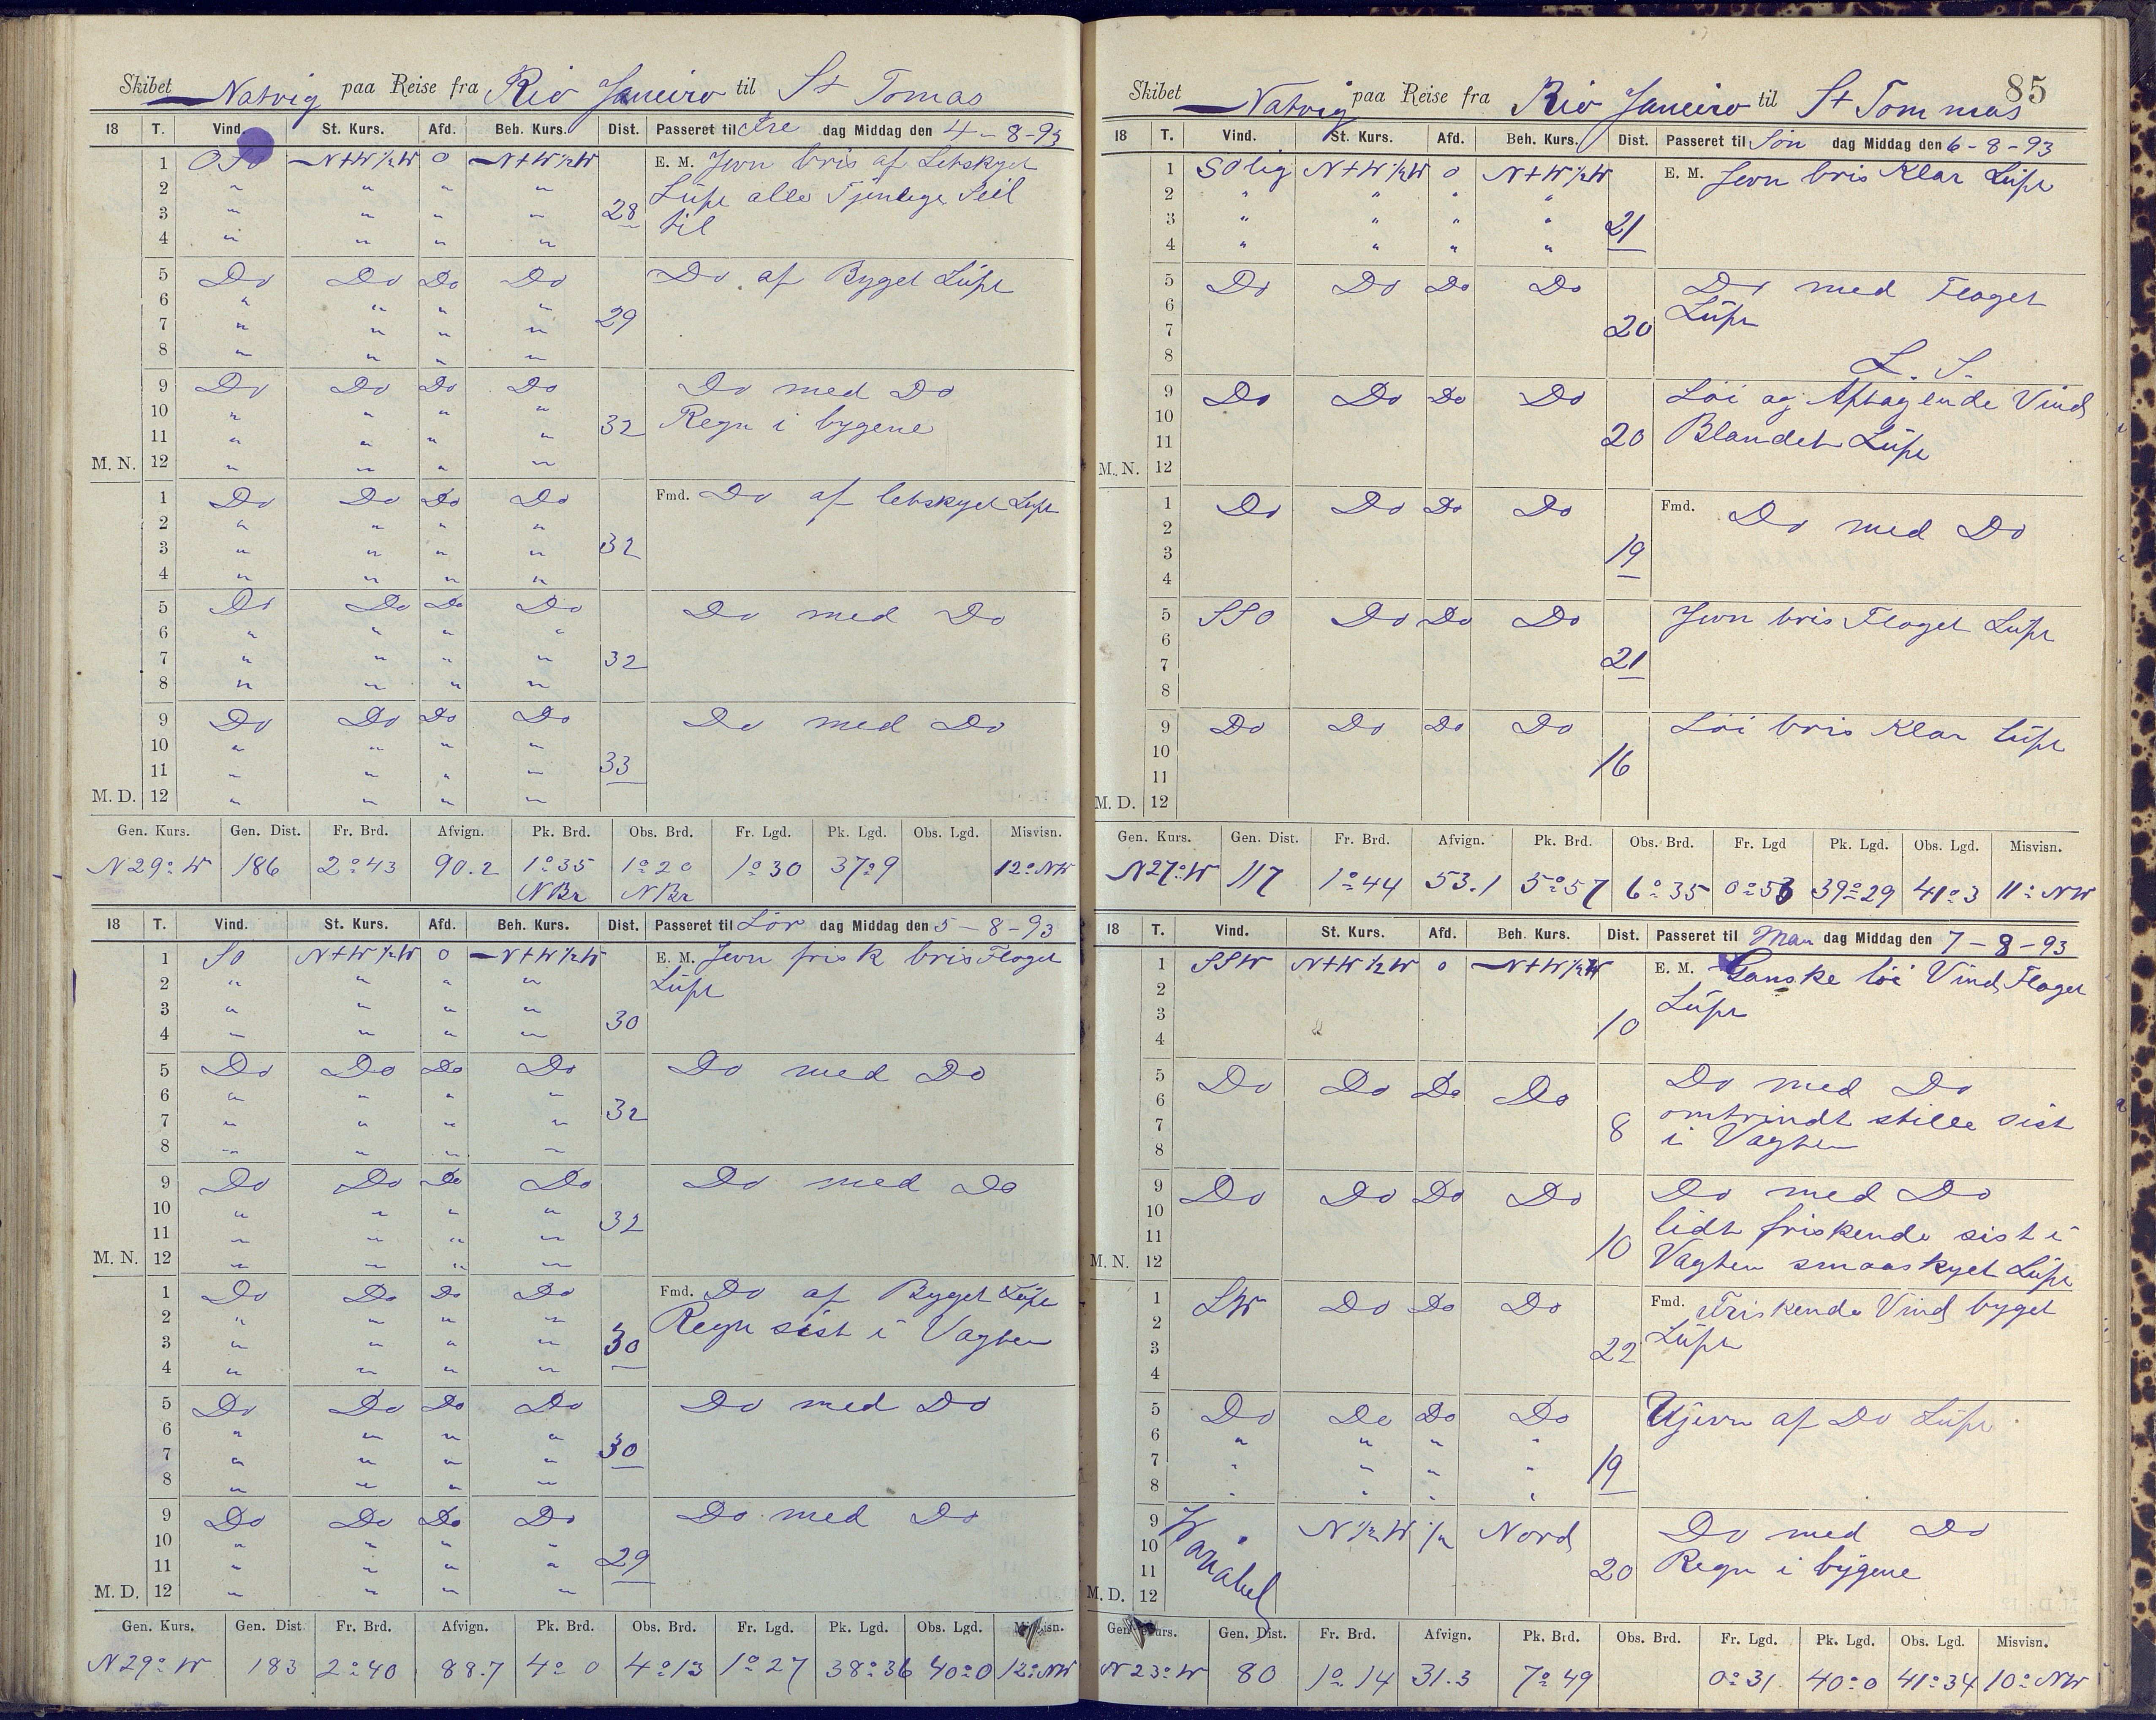 Skibet Natvig paa Reise fra Rio Janeiro til St Tomas
18 T. Vind. St. Kurs. Afd. Beh. Kurs. Dist. Passeret til Fre dag Middag den 4-8-93
1 OSO N+W½W 0 N+W½W E. M. Jevn bris af Letskyet
2 " " " " Lüft alle Tjenlige Seil
3 " " " " 28 til
4 " " " "
5 Do Do Do Do Do af Byget Lüft
6 " " " "
7 " " " " 29
8 " " " "
9 Do Do Do Do Do med Do
10 " " " " Regn i bygene
11 " " " " 32
M. N. 12 " " " "
1 Do Do Do Do Fmd. Do af letskyet Lüft
2 " " " "
3 " " " " 32
4 " " " "
5 Do Do Do Do Do med Do
6 " " " "
7 " " " " 32
8 " " " "
9 Do Do Do Do Do med Do
10 " " " "
11 " " " " 33
M. D. 12 " " " "
Gen. Kurs. Gen. Dist. Fr. Brd. Afvign. Pk. Brd. Obs. Brd. Fr. Lgd. Pk. Lgd. Obs. Lgd. Misvisn.
N 29° W 186 2°43 90.2 1°35 1°20 1°30 37°9 12° NW
N Br N Br
18 T. Vind. St. Kurs. Afd. Beh. Kurs. Dist. Passeret til Lör dag Middag den 5-8-93
1 SO N+W½W 0 N+W½W E. M. Jevn frisk bris Floget
2 " " " " Lüft
3 " " " " 30
4 " " " "
5 Do Do Do Do Do med Do
6 " " " "
7 " " " " 32
8 " " " "
9 Do Do Do Do Do med Do
10 " " " "
11 " " " " 32
M. N. 12 " " " "
1 Do Do Do Do Fmd. Do af Byget Lüft
2 " " " " Regn sist i Vagten
3 " " " " 30
4 " " " "
5 Do Do Do Do Do med Do
6 " " " "
7 " " " " 30
8 " " " "
9 Do Do Do Do Do med Do
10 " " " "
11 " " " " 29
M. D. 12 " " " "
Gen. Kurs. Gen. Dist Fr. Brd. Afvign. Pk. Brd. Obs. Brd. Fr. Lgd. Pk. Lgd. Obs. Lgd. Misvisn.
N 29° W 183 2°40 88.7 4°0 4°13 1°27 38°36 40°0 12° NW
85
Skibet Natvig paa Reise fra Rio Janeiro til St Tommas
18 T. Vind. St. Kurs. Afd. Beh. Kurs. Dist. Passeret til Søn dag Middag den 6-8-93
1 SOlig N+W½W 0 N+W½W E. M. Jevn bris Klar Lüft
2 " " " "
3 " " " " 21
4 " " " "
5 Do Do Do Do Do med Floget
6 Lüft
7 20
8 L. S.
9 Do Do Do Do Löi og Aftagende Vind
10
11 20 Blandet Lüft
M. N. 12
1 Do Do Do Do Fmd. Do med Do
2
3 19
4
5 SSO Do Do Do Jevn bris Floget Lüft
6
7 21
8
9 Do Do Do Do Löi bris Klar Lüft
10
11 16
M. D. 12
Gen. Kurs. Gen. Dist. Fr. Brd. Afvign. Pk. Brd. Obs. Brd. Fr. Lgd Pk. Lgd. Obs. Lgd. Misvisn.
N 27° W 117 1°44 53.1 5°57 6°35 0°53 39°29 41°3 11° NW
18 T. Vind. St. Kurs. Afd. Beh. Kurs. Dist. Passeret til Man dag Middag den 7-8-93
1 SSW N+W½W 0 N+W½W E. M. Ganske löi Vind Floget
2 Lüft
3 10
4
5 Do Do Do Do Do med Do
6 omtrindt stille sist
7 8 i Vagten
8
9 Do Do Do Do Do med Do
10 lidt friskende sist i
11 10 Vagten smaaskyet Lüft
M. N. 12
1 SW Do Do Do Fmd. Friskende Vind byget
2 Lüft
3 22
4
5 Do Do Do Do Ujevn af Do Lüft
6 " " " "
7 " " " " 19
8 " " " "
9 Variabel N½W ½ Nord Do med Do
10 Regn i bygene
11 20
M. D. 12
Gen. Kurs. Gen. Dist. Fr. Brd. Afvign. Pk. Brd. Obs. Brd. Fr. Lgd. Pk. Lgd. Obs. Lgd. Misvisn.
N 23° W 80 1°14 31.3 7°49 0°31 40°0 41°34 10° NW